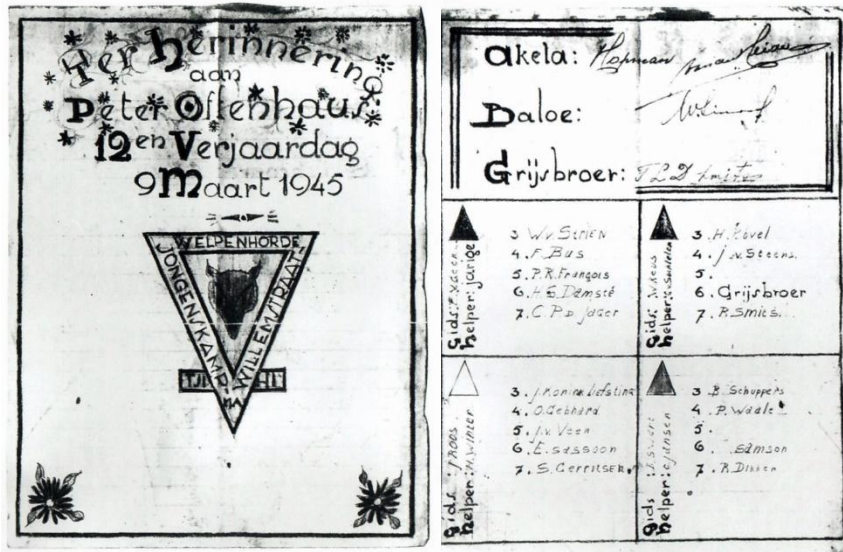 Ter Herinnering
aan
Peter Ostenhaus'
12en Verjaardag
9 Maart 1945
WELPENHORDE
JONGENSKAMP
WILLEMSTRAAT
TJIMAHI
Akela: Hopman
Baloe:
Grijsbroer:
Gids:
helper: jarige
3 W.v. Strien
4. F. Bus
5. P.R. François
6. H.S. Damsté
7. C.P.D. Jager
Gids:
helper:
3. H. Kovel
4. J.v. Steens
5.
6. Grijsbroer
7. R. Smies.
Gids: J. ROOS
helper: H. WINTER
3. J. Konink Liefstink
4. O. Gebhard
5. J.v. Veen
6. E. Sassoon
7. S. Gerritsen.
Gids
helper: C. Jansen
3 B. Schuppers
4. P. Waale
5.
6. Samson
7. R. Dikken